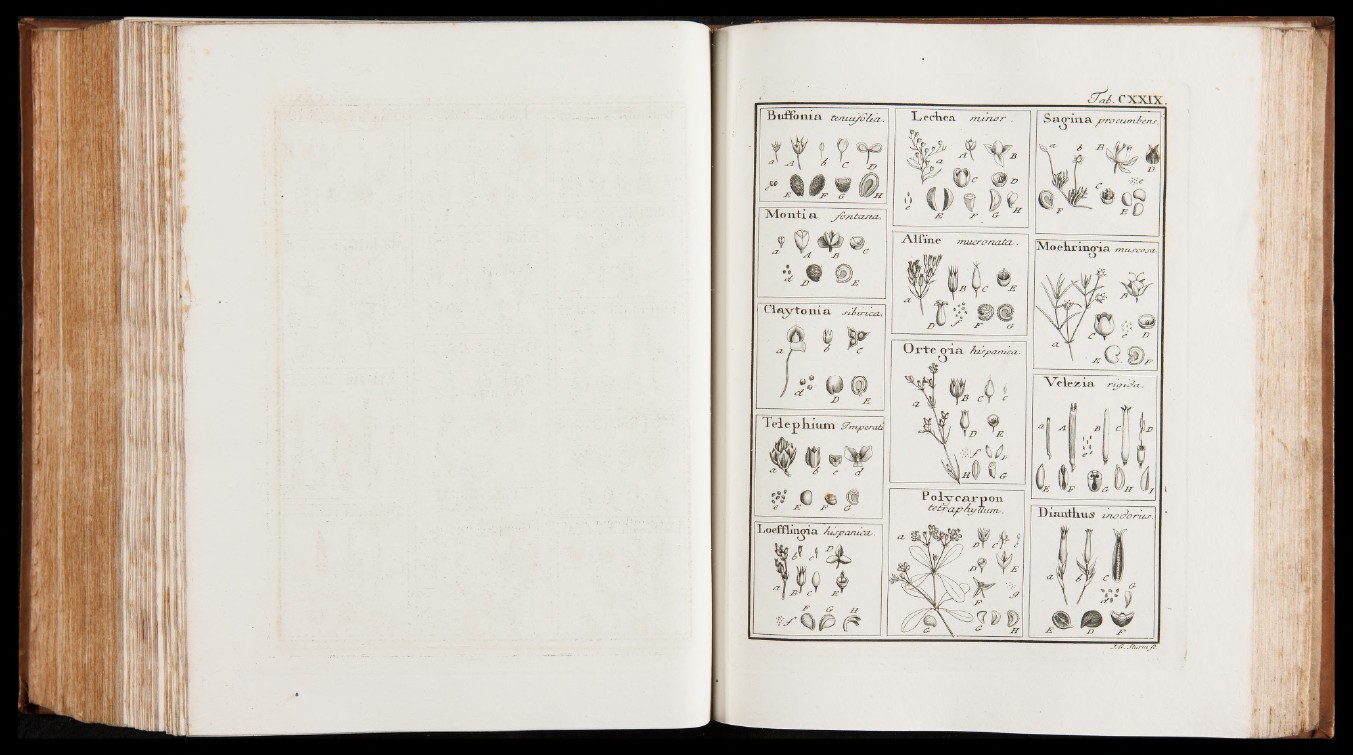 Tab. CXXIX.
Buffonia tenuifolia.
a A b C D
E F G H
Montia fontana.
a A B C
d D E
Claytonia sibirica.
a b C
d D E
Telephium Imperati
a b c d
e E F G
Loefflingia hispanica.
b c D
a B C E
F G H
f
Lechea minor.
a A B
C D
e E F G H
Alsine mucronata.
a B C E
D f F G
Ortegia hispanica.
a B C c
D E
f F
H G
Polycarpon
tetraphyllum.
a B C c
D E
F g
G G H
Sagina procumbens.
a b B D
c e
F E
Moehringia muscosa
B
a C d D
E F
Velezia rigida.
a A B C D
e
E F G H I
Dianthus inodorus.
a b C
d G
E D F
J. G. Sturm sc.